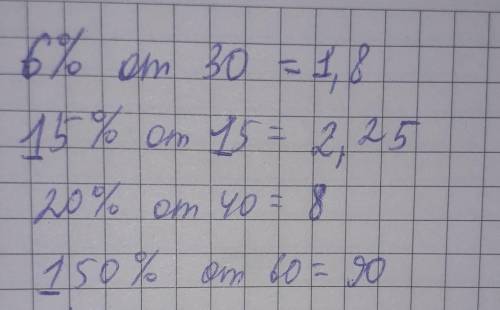 6% от 30 = 1,8
15% от 15 = 2,25
20% от 40 = 8
150% от 60 = 90